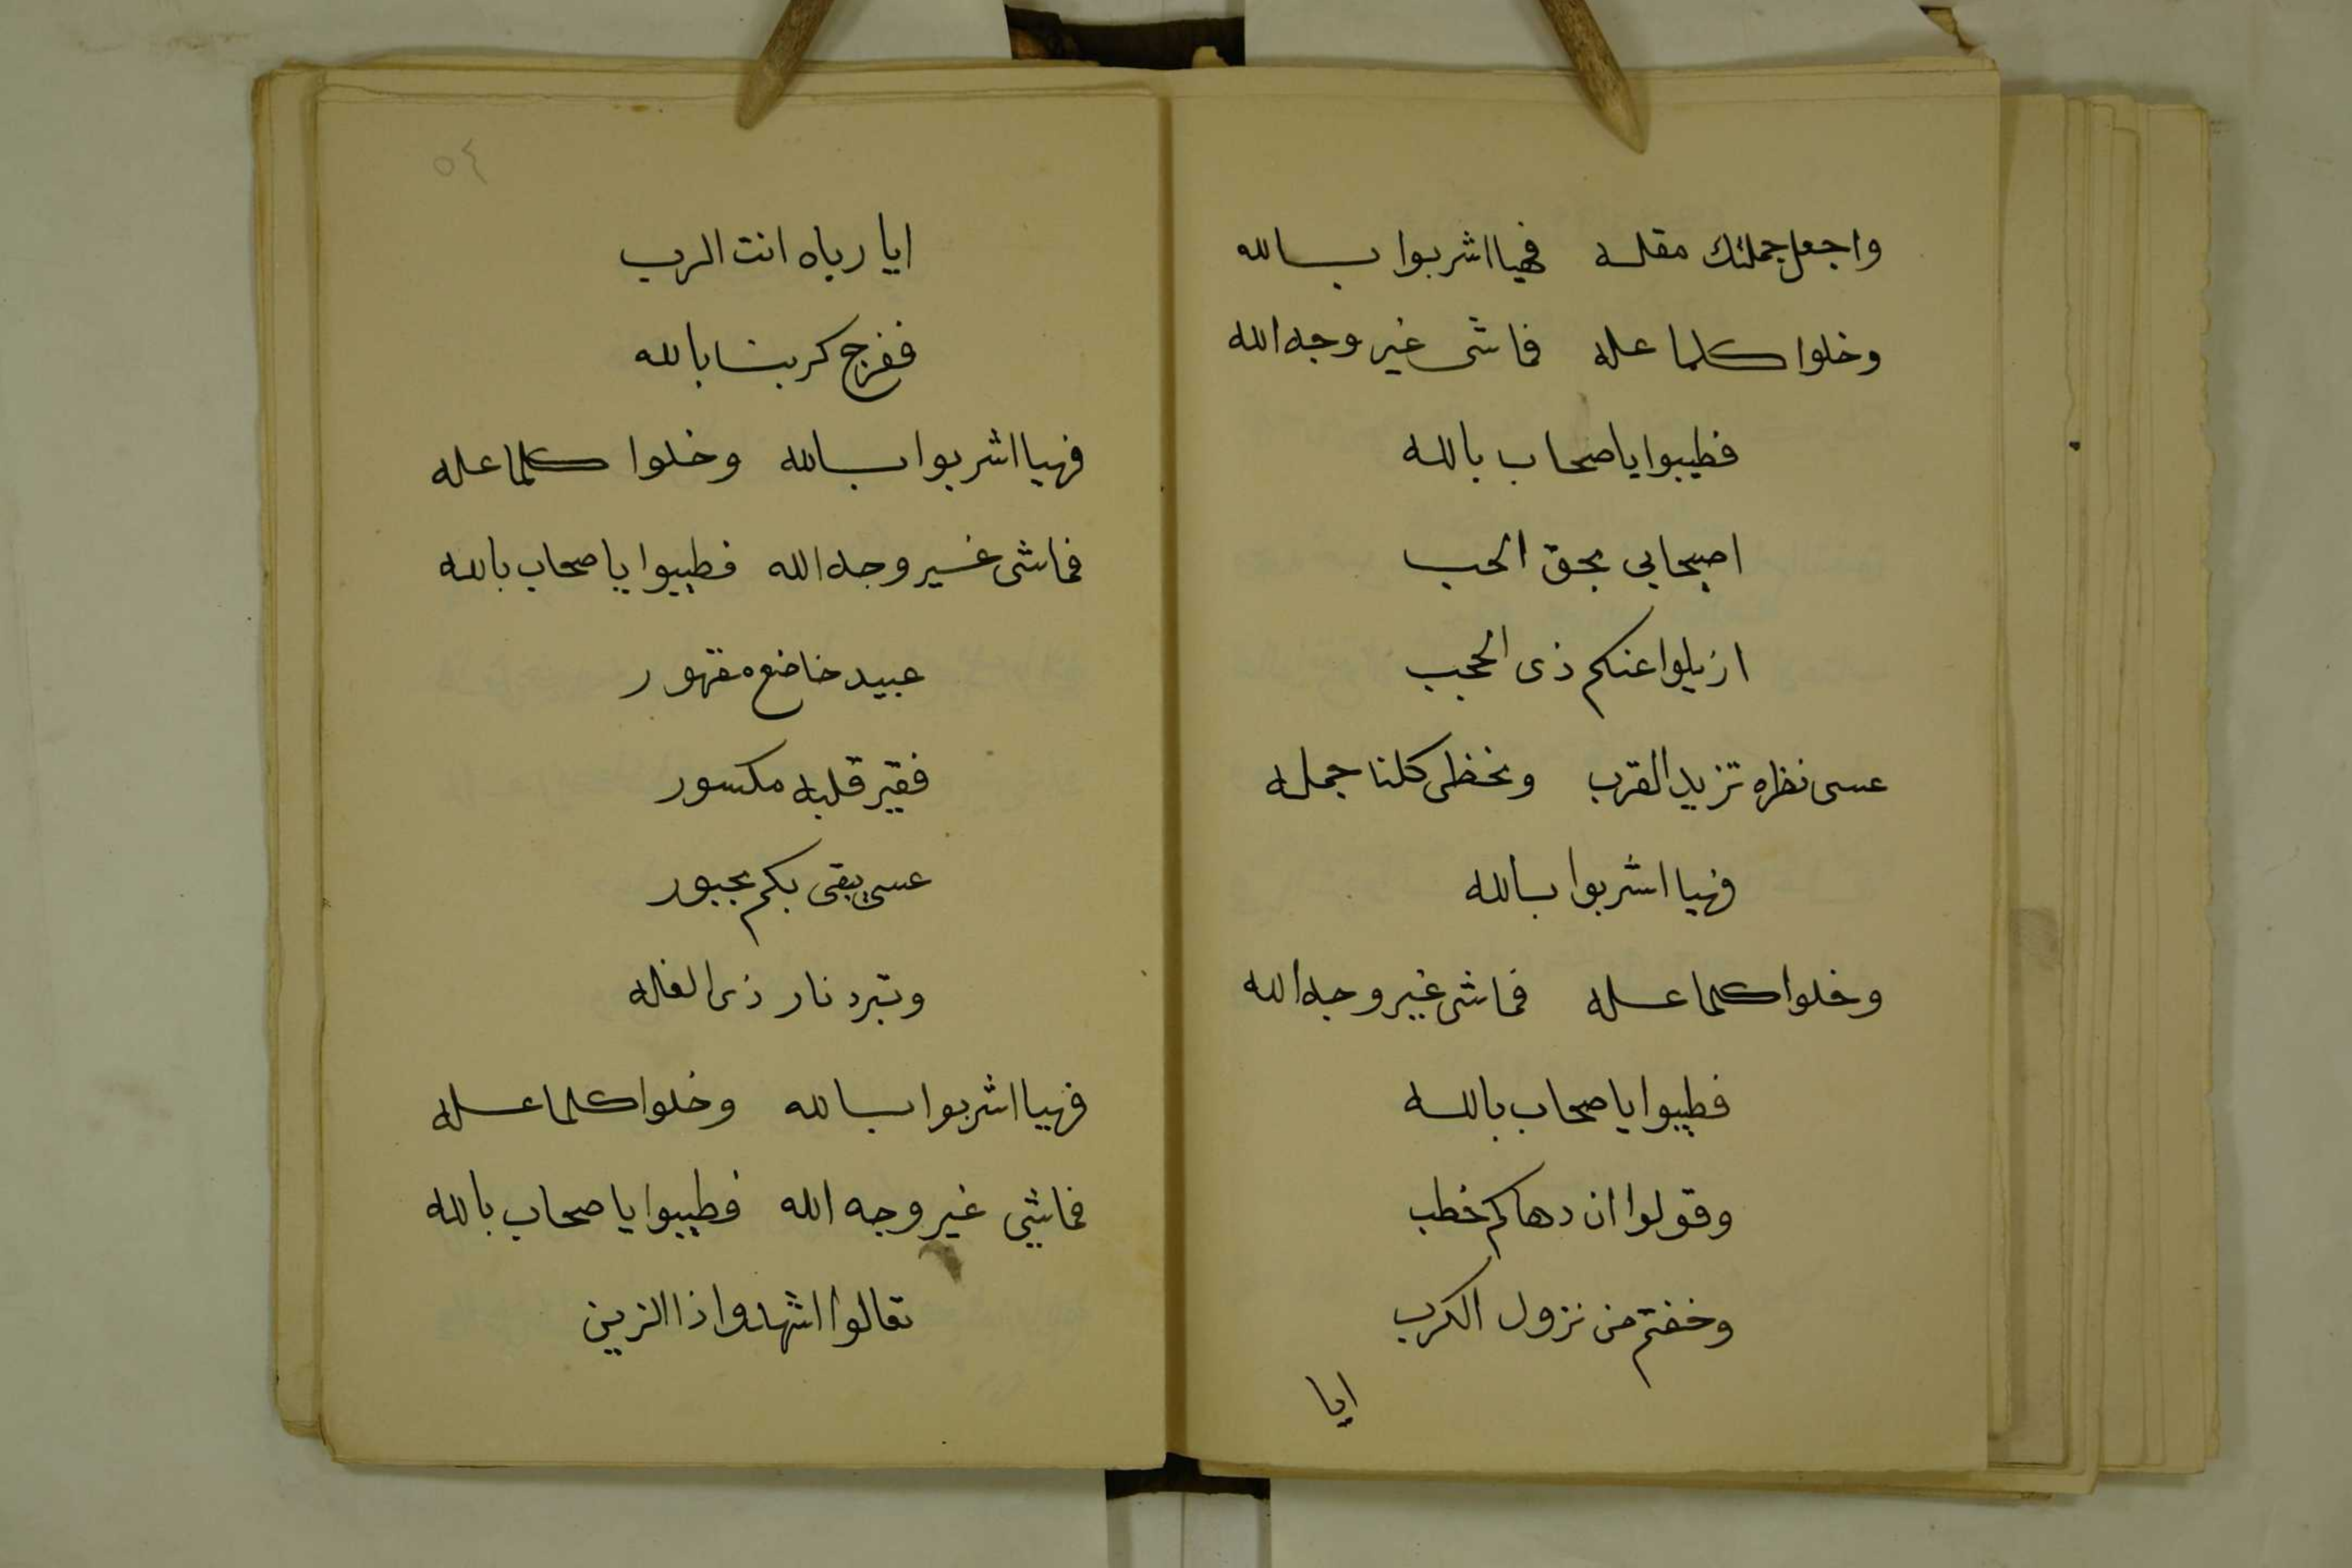 واجعل جملتك مقله فهيا اشربوا بسالله
وخلوا كلما عله فما شى غير وجه الله
فطيبوا يا صحاب بالله
اصيحابى بحق الحب
ازيلوا عنكم ذى الحجب
عسى نظره تزيد القرب ونحظى كلنا جمله
فهيا اشربوا بسالله
وخلوا كلما عله فما شى غير وجه الله
فطيبوا يا صحاب بالله
وقولوا ان دهاكم خطب
وخفتم من نزول الكرب
ايا
٥٤
ايا رباه انت الرب
ففرج كربنا بالله
فهيا اشربوا بسالله وخلوا كلما عله
فما شى غير وجه الله فطيبوا يا صحاب بالله
عبيد خاضع مقهور
فقير قلبه مكسور
عسى يبقى بكم مجبور
وتبرد نار ذى الغله
فهيا اشربوا بسالله وخلوا كلما عله
فما شي غير وجه الله فطيبوا يا صحاب بالله
تعالوا اشهدوا ذا الزين